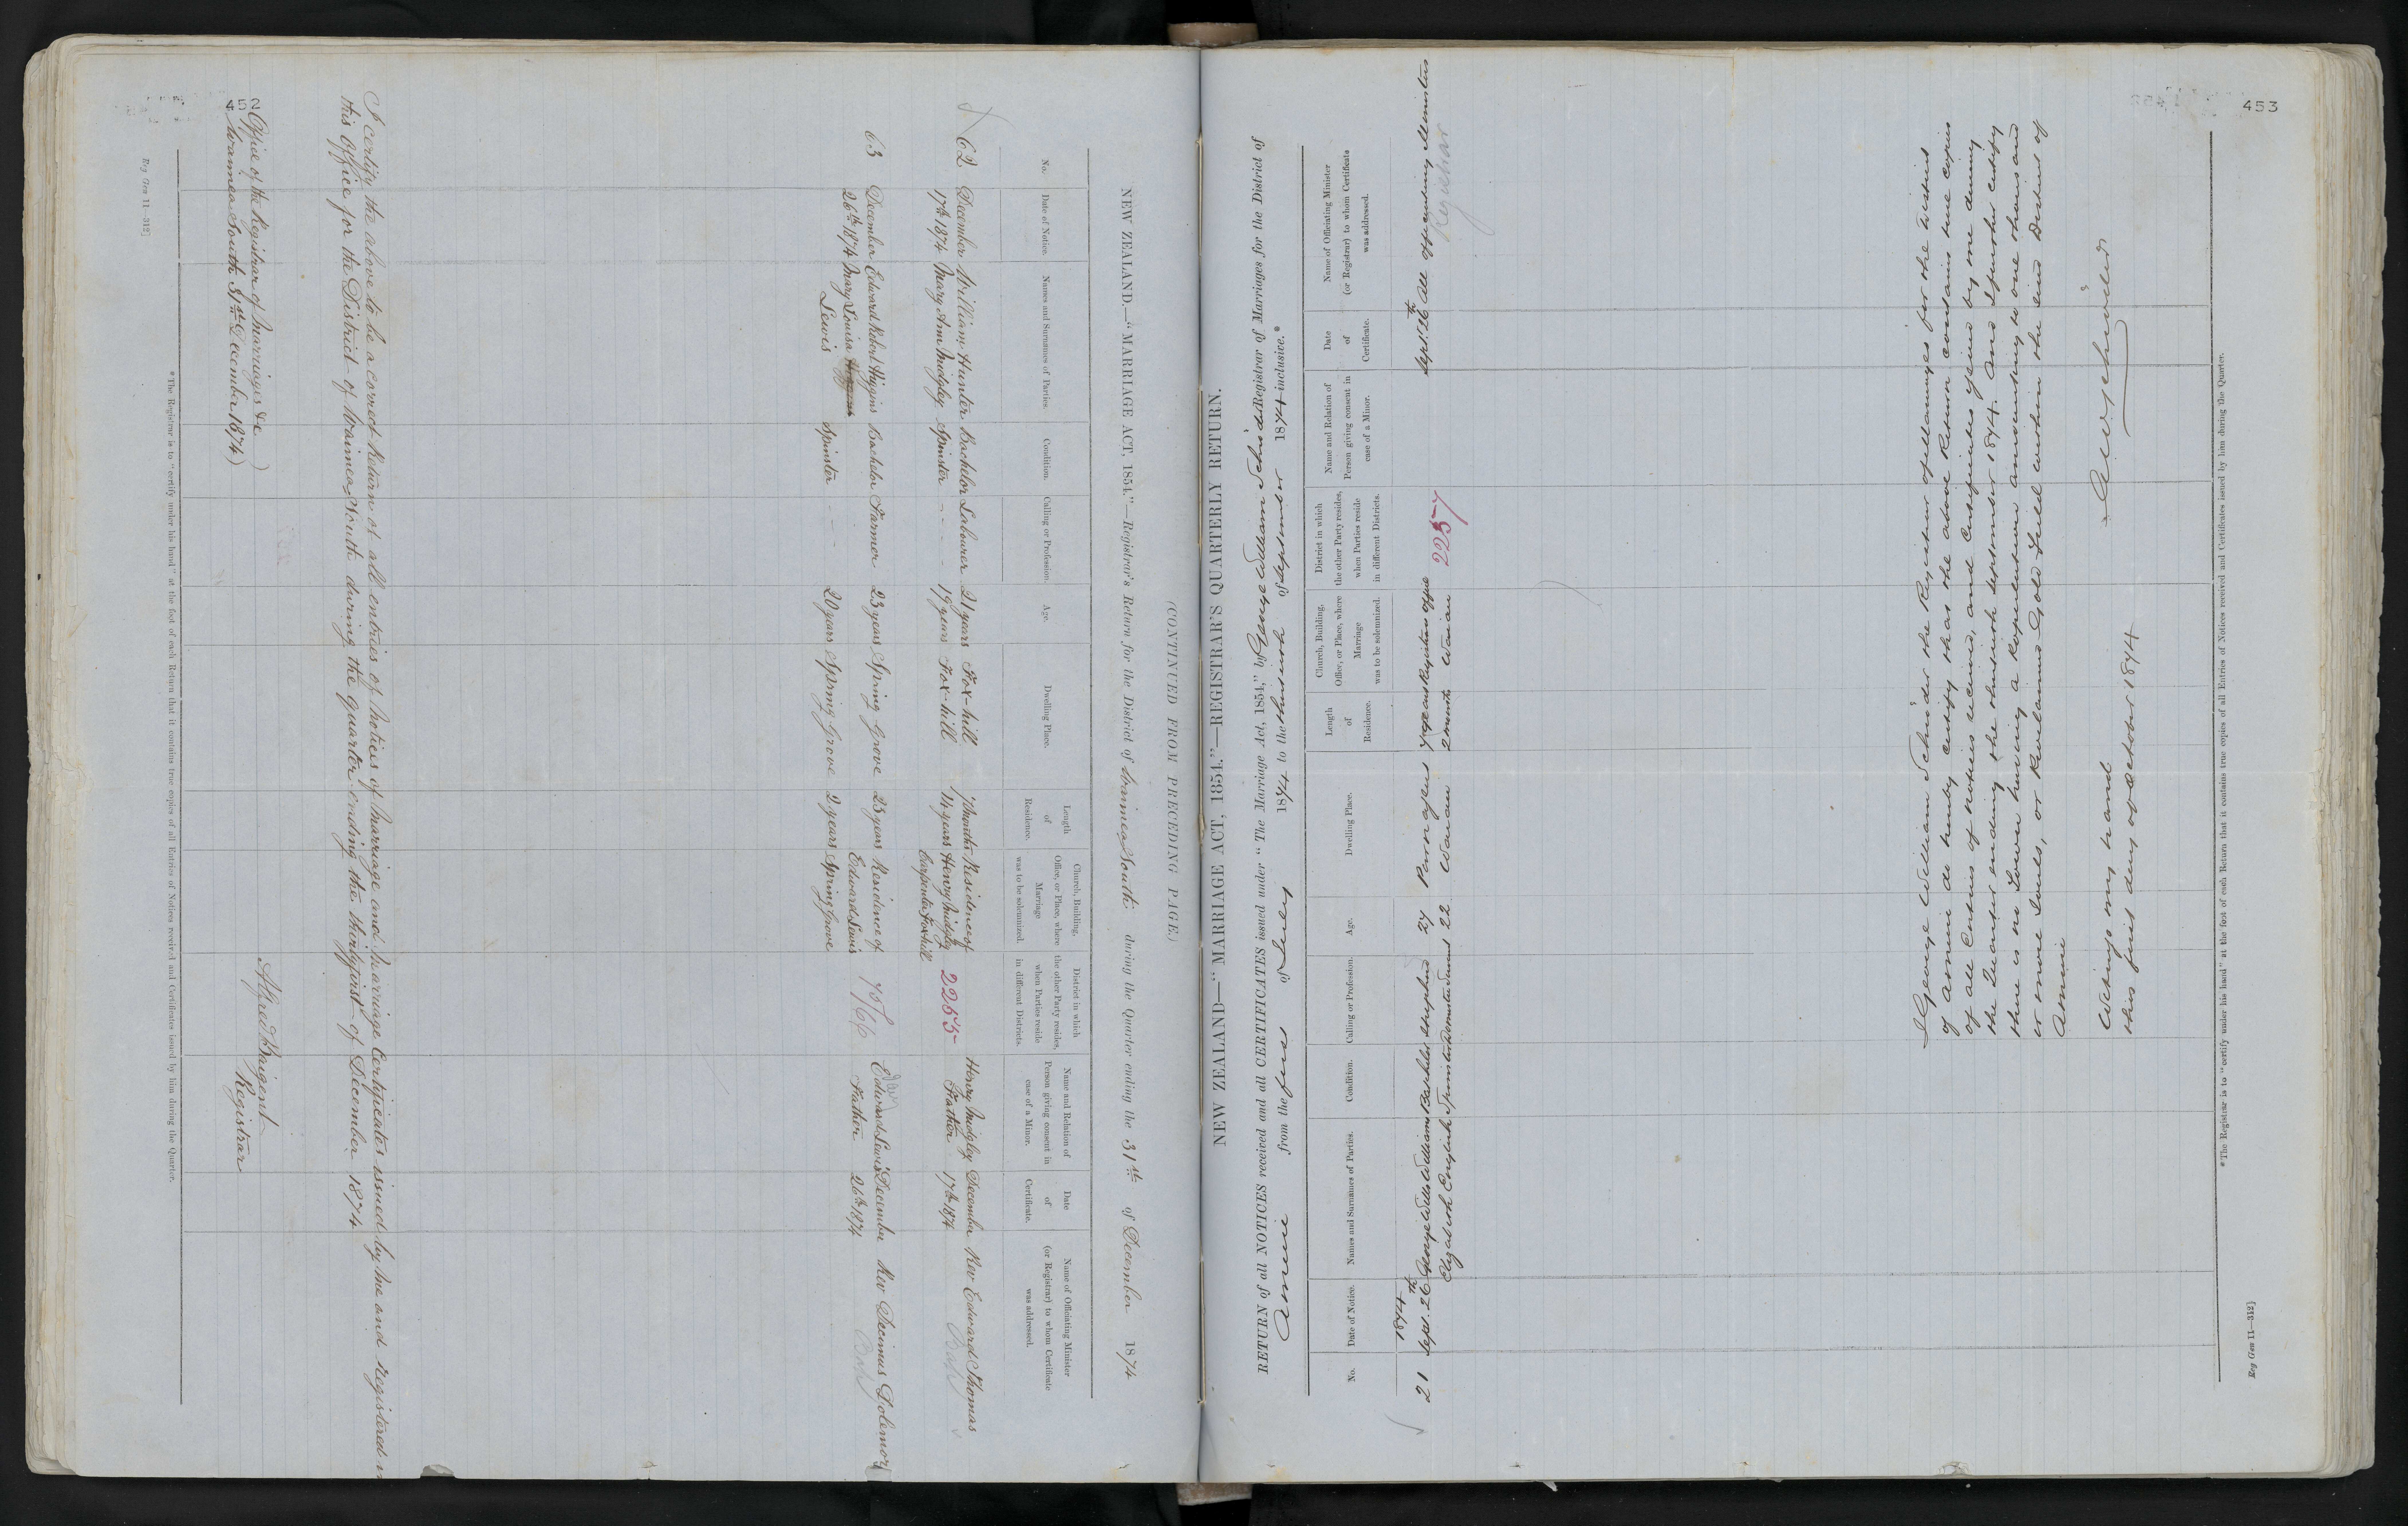 452
(CONTINUED FROM PRECEDING PAGE.)
NEW ZEALAND.—"MARRIAGE ACT, 1854."—Registrar's Return for the District of Waimea South during the Quarter ending the 31st of December 1874
No.
Date of Notice.
Names and Surnames of Parties.
Condition.
Calling or Profession.
Age.
Dwelling Place.
Length of Residence.
Church, Building, Office, or Place, where Marriage was to be solemnized.
District in which the other Party resides, when Parties reside in different Districts.
Name and Relation of Person giving consent in case of a Minor.
Date of Certificate.
Name of Officiating Minister (or Registrar) to whom Certificate was addressed.
62 December William Hunter Bachelor Labourer 21 years Fox-hill Months Residence of Henry Midgley December Rev Edward Thomas
17th 1874 Mary Ann Midgley Spinster - - - 19 years Fox-hill 14 years Henry Midgley 2255 Father 17th 1874
Carpenter Foxhill
63 December Edward Robert Higgins Bachelor Farmer 23 years Spring Grove 23 years Residence of Edward Lewis December Rev Decimus Dolemore
26th 1874 Mary Louisa Edward Lewis 75/66 Father 26th 1874
Lewis Spinster - - 20 years Spring Grove 2 years Spring Grove
I certify the above to be a correct Return of all entries of Notices of Marriage and Marriage Certificates issued by me and registered in
this Office for the District of Waimea South during the quarter ending the thirtyfirst of December 1874
Office of the Registrar of Marriages &c
Waimea South 31st December 1874
Alfred Brigent
Registrar
*The Registrar is to "certify under his hand" at the foot of each Return that it contains true copies of all Entries of Notices received and Certificates issued by him during the Quarter.
Reg Gen 11—312]
453
NEW ZEALAND—"MARRIAGE ACT, 1854."—REGISTRAR'S QUARTERLY RETURN.
RETURN of all NOTICES received and all CERTIFICATES issued under "The Marriage Act, 1854," by George William Schröder Registrar of Marriages for the District of
from the first of July 1874 to the thirtieth of September 1874 inclusive.*
No.
Date of Notice.
Names and Surnames of Parties.
Condition.
Calling or Profession.
Age.
Dwelling Place.
Length of Residence.
Church, Building, Office, or Place, where Marriage was to be solemnized.
District in which the other Party resides, when Parties reside in different Districts.
Name and Relation of Person giving consent in case of a Minor.
Date of Certificate.
Name of Officiating Minister (or Registrar) to whom Certificate was addressed.
1874
21 Sept. 26th George Wells Williams Bachelor Shepherd 27 years Registrars office Sept. 26th All officiating Ministers
Elizabeth English Spinster Domestic Servant 22 2 months 2257 Registrar
I George William Schröder the Registrar of Marriages for the District
of do hereby certify that the above Return contains true copies
of all Entries of notices received, and Certificates given by me during
the Quarter ending the thirtieth September 1874. And I further certify
there is no Town having a Population amounting to one thousand
or more Souls, or Proclaimed Gold Field within the said District of
Witness my hand
this first day of October 1874
G W Schröder
*The Registrar is to "certify under his hand" at the foot of each Return that it contains true copies of all Entries of Notices received and Certificates issued by him during the Quarter.
Reg Gen 11—312]